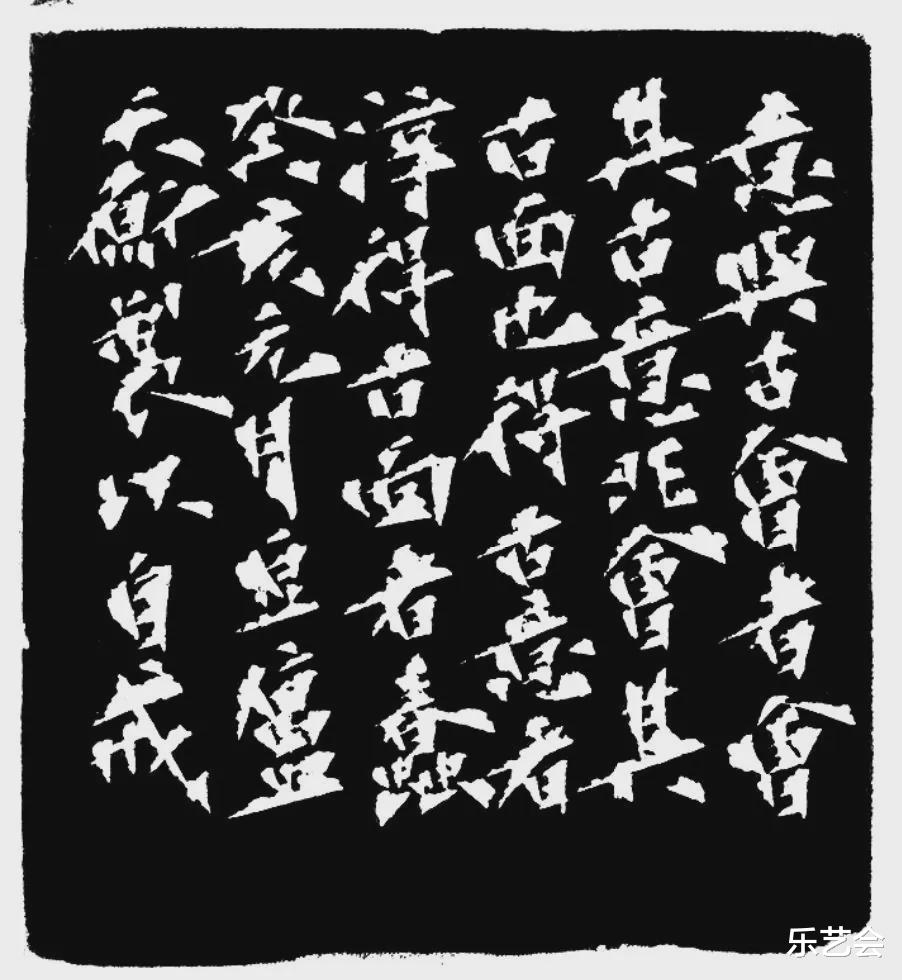 意與古會者會
其古意非會其
古面也得古意者
淳得古面者蠢
癸亥元月豆廬
天衡製以自戒
乐艺会